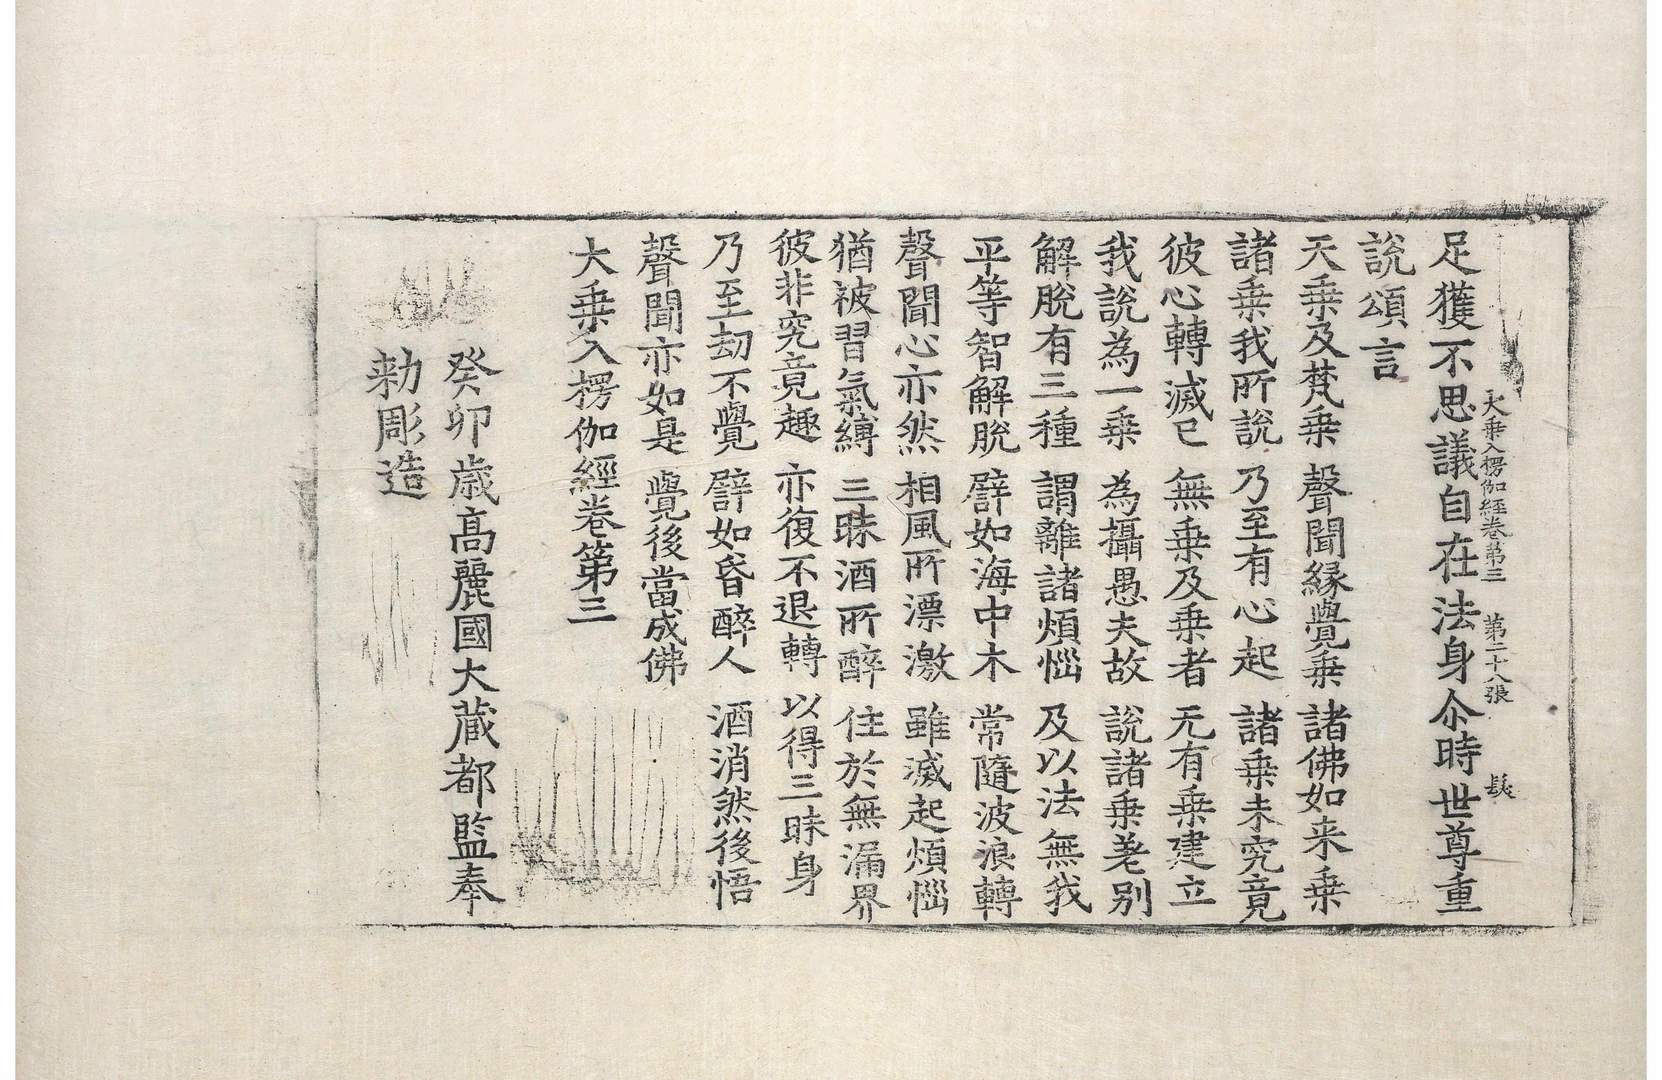 大乗入楞伽經卷第三　第二十八張　髮
足獲不思議自在法身尒時世尊重
說頌言
天乗及梵乗　聲聞緣覺乗　諸佛如来乗
諸乗我所說　乃至有心起　諸乗未究竟
彼心轉滅已　無乗及乗者　无有乗建立
我說為一乗　為攝愚夫故　說諸乗差别
解脫有三種　謂離諸煩惱　及以法無我
平等智解脫　譬如海中木　常隨波浪轉
聲聞心亦然　相風所漂激　雖滅起煩惱
猶被習氣縛　三昧酒所醉　住於無漏界
彼非究竟趣　亦復不退轉　以得三昧身
乃至劫不覺　譬如昏醉人　酒消然後悟
聲聞亦如是　覺後當成佛
大乗入楞伽經卷第三
癸卯歳高麗國大藏都監奉
勅彫造